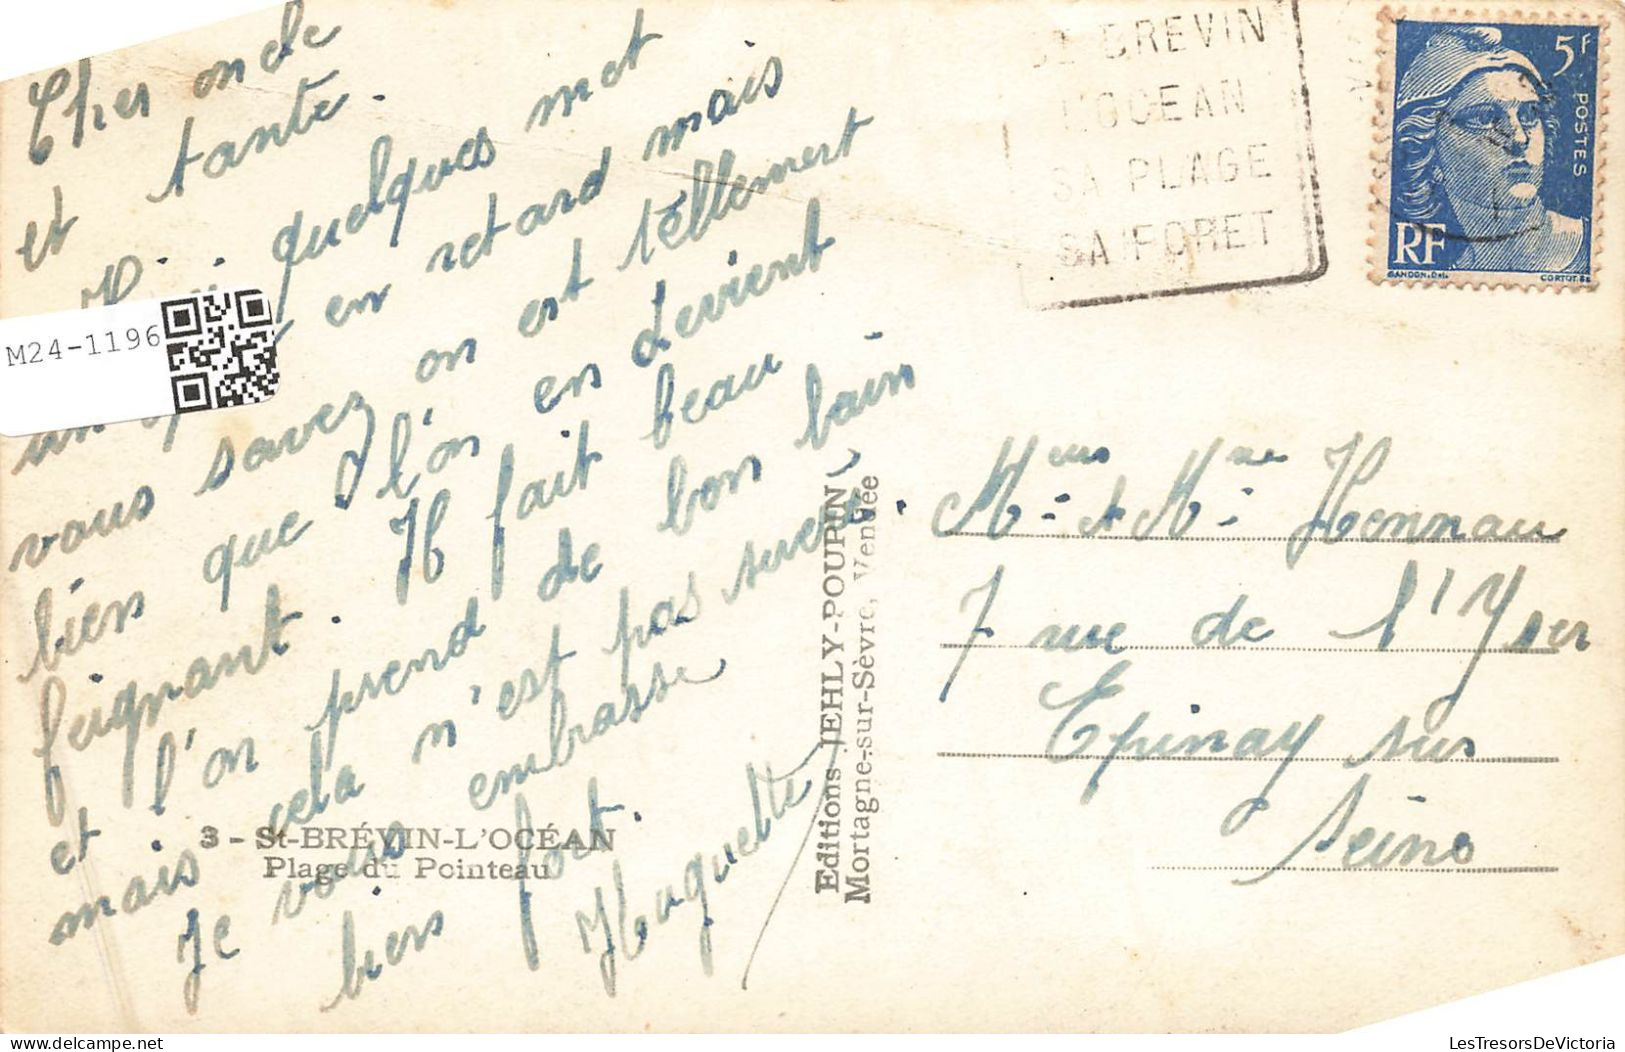 Cher oncle
et tante.
quelques mot
un en retard mais
vous savez on est tellement
bien que l'on en devient
feignant. Il fait beau
et l'on prend de bon bain
mais cela n'est pas sucré.
Je vous embrasse
bien fort.
Huguette
M24-1196
3 - St-BRÉVIN-L'OCÉAN
Plage du Pointeau
Editions JEHLY-POUPIN
Mortagne-sur-Sèvre, Vendée
St BREVIN
L'OCEAN
SA PLAGE
SA FORET
5F
POSTES
RF
GANDON.Del.
CORTOT.Sc
Meur et Mme Hennau
7 rue de l'Yser
Epinay sur
Seine
LesTresorsDeVictoria